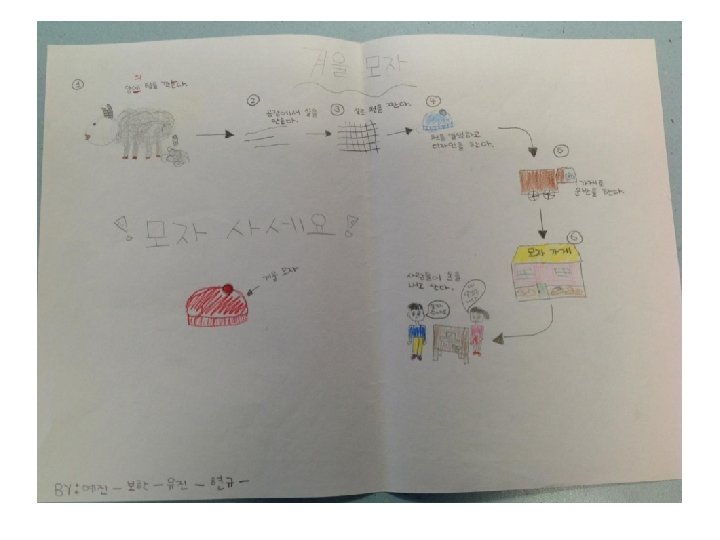 겨울 모자
①
의
양 털을 깎는다.
②
공장에서 실을
만든다.
③
실로 천을 짠다.
④
천을 결합하고
디자인을 한다.
⑤
가게로
운반을 한다.
⑥
모자 가게
사람들이 돈을
내고 산다.
모자 사세요!
겨울 모자
BY: 예진 - 보한 - 유진 - 현규 -